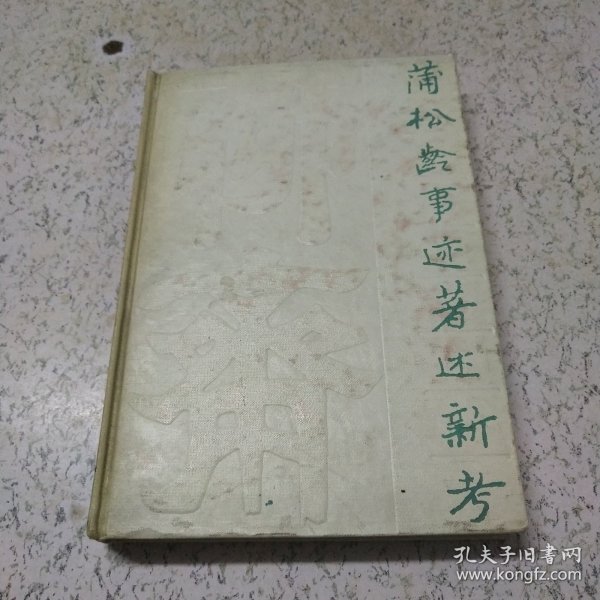 蒲松龄事迹著述新考
孔夫子旧书网
www.kongfz.com